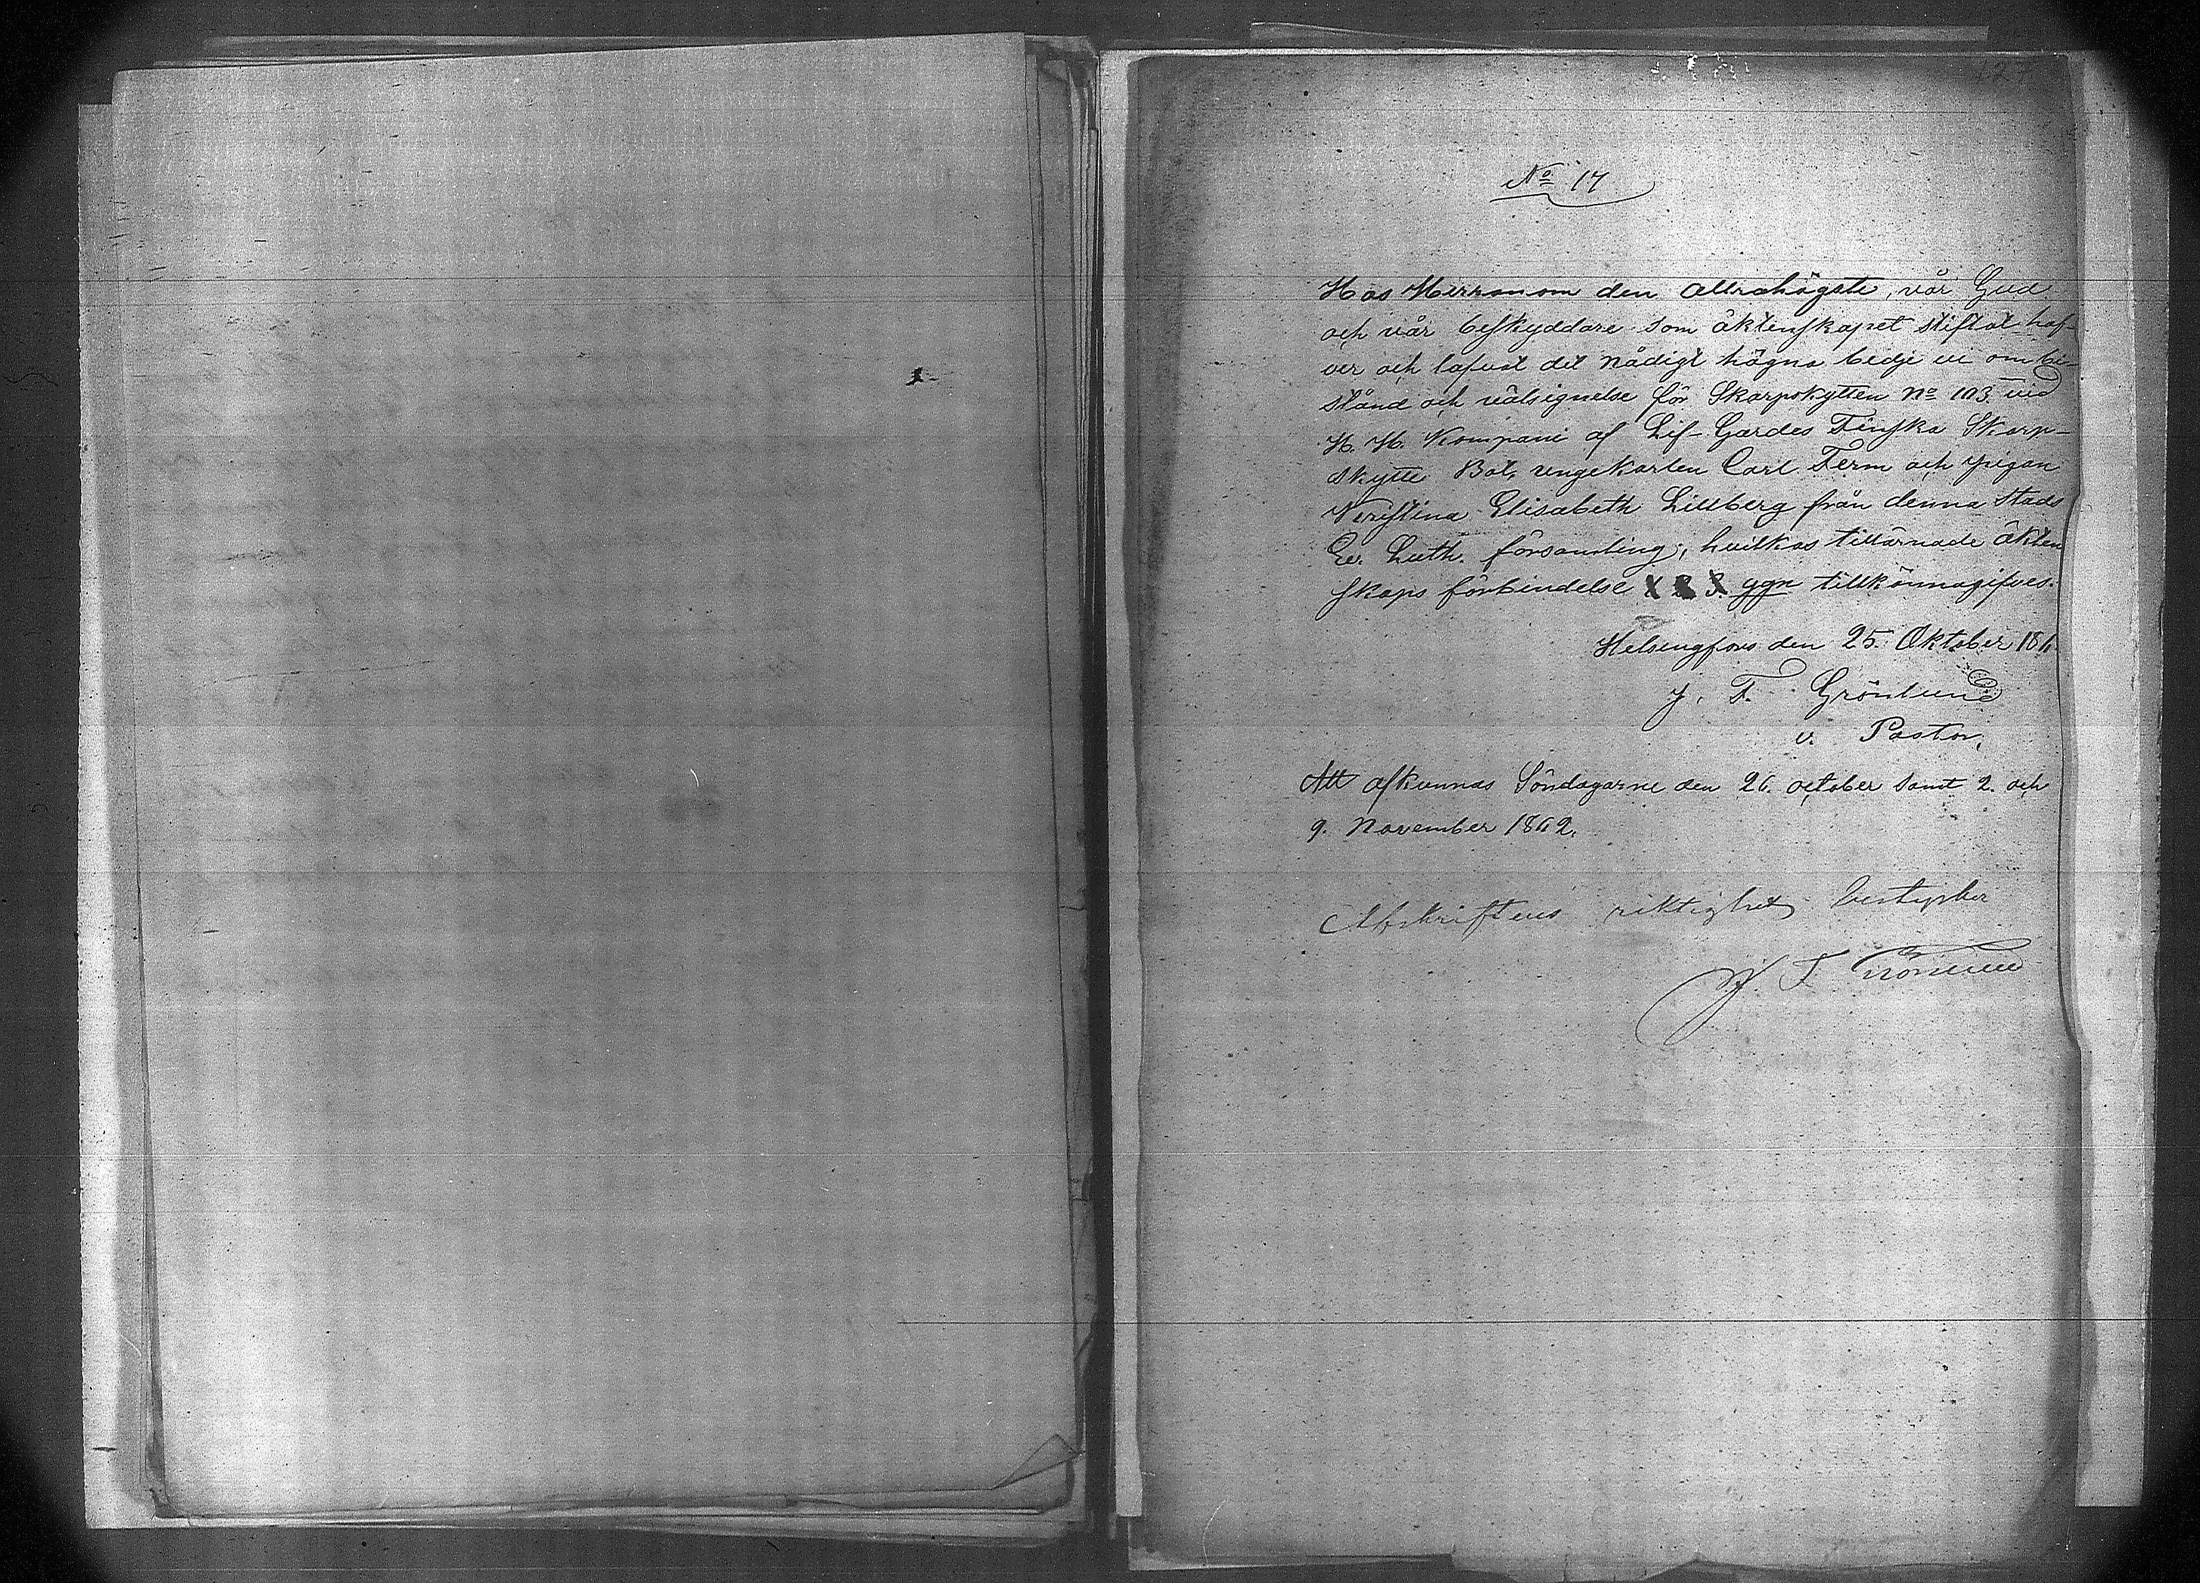 No 17
Hos Herranom den allrahögste, vår Gud
och vår beskyddare som äktenskapet stiftat haf-
ver och lofvat det nådigt hägna bedje vi om bi-
stånd och välsignelse för Skarpskytten No 103 vid
H. H. Kompani af Lif-Gardes Finska Skarp-
skytte Bat, ungekarlen Carl Ferm och pigan
Kristina Elisabeth Lillberg från denna stads
Ev. Luth. församling; hvilkas tillärnade äkten
skaps förbindelse ggn tillkännagifves.
Helsingfors den 25. Oktober 186
J. F. Grönlund
v. Pastor.
Att afkunnas Söndagarne den 26. october samt 2. och
9. November 1862.
Afskriftens riktighet bestyrker
J. F. Grönlund